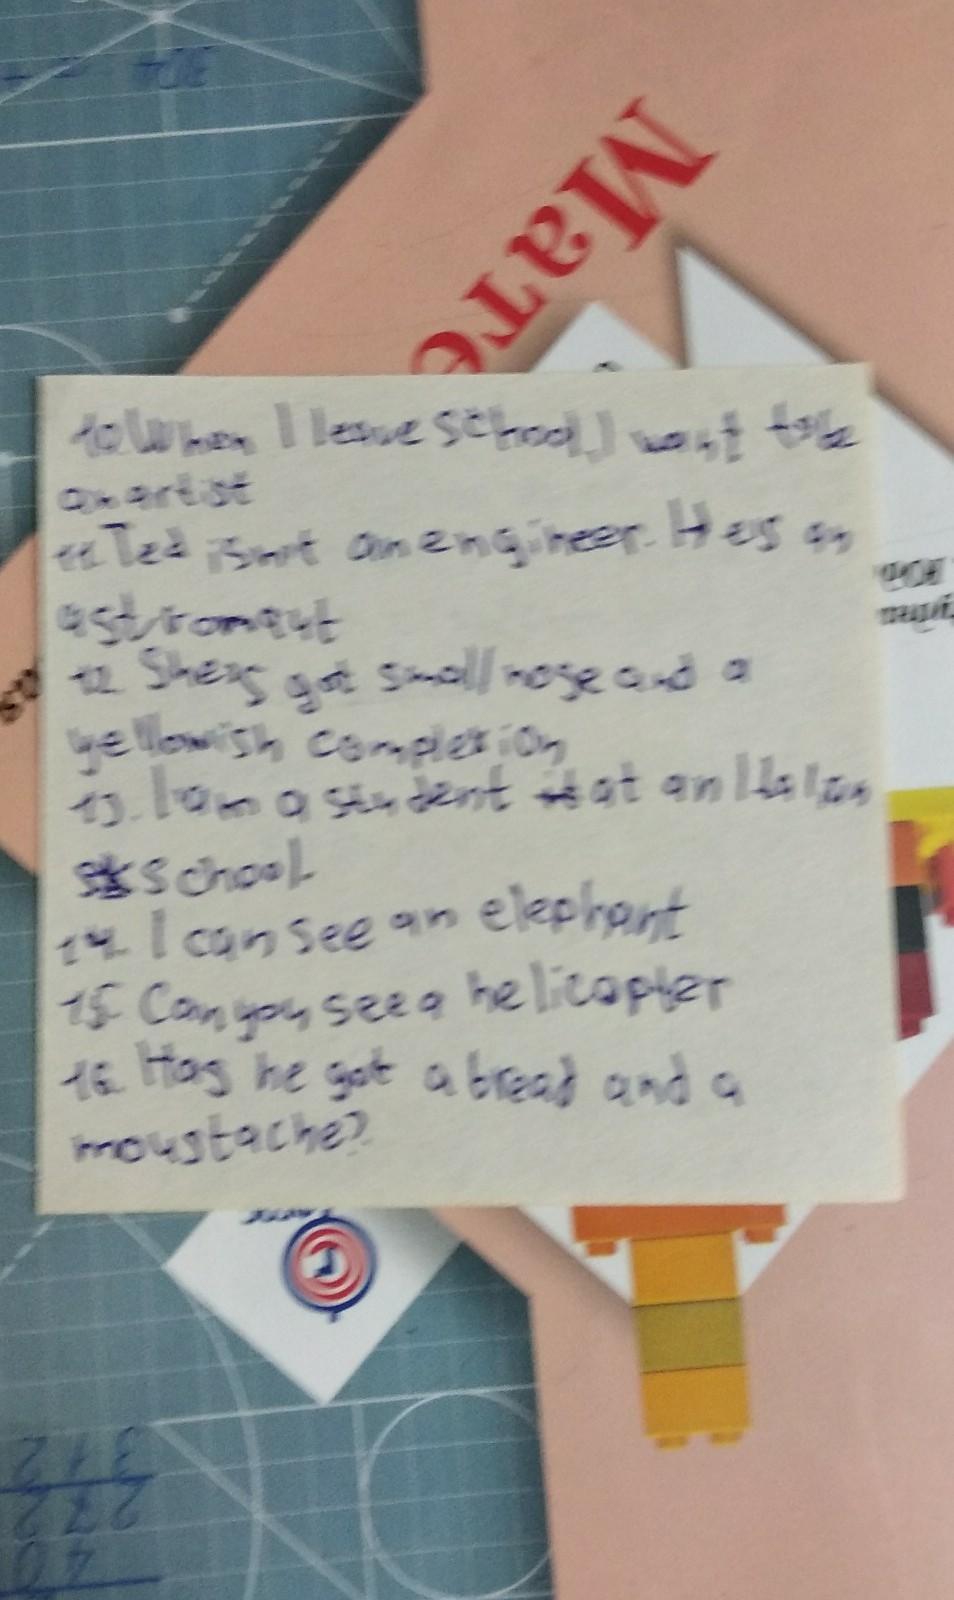 Мате
10. When I leave school, I want to be
an artist
11. Ted isn't an engineer. He's an
astronaut
12. She's got small nose and a
yellowish complexion
13. I am a student at an Italian
school
14. I can see an elephant
15. Can you see a helicopter
16. Has he got a bread and a
moustache?
312
272
40